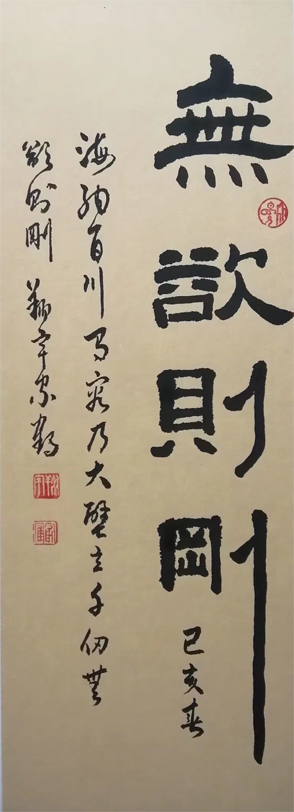 無欲則剛
己亥春
海納百川有容乃大壁立千仞無
欲則剛